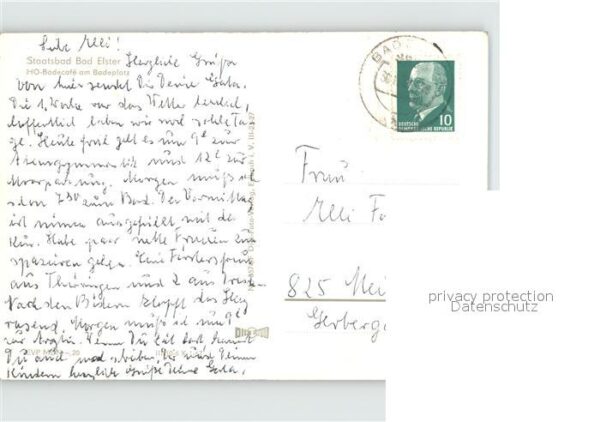 Liebe Elli!
Staatsbad Bad Elster Herzliche Grüße
HO-Badecafé am Badeplatz
von hier sendet Dir Deine
Die 1. Woche war das Wetter herrlich,
hoffentlich haben wir noch solche Ta-
ge. Heute früh geht es um 9h zur
und 12h zur
Moorpackung. Morgen muß ich
schon 7 30 zum Bad. Der Vormittag
ist immer ausgefüllt mit der
Kur. Habe paar nette Frauen zum
spazieren gehen. Eine
aus Thüringen und 2 aus
Nach den Bädern klopft das Herz
rasend. Morgen muß ich um 9h
zur Wenn Du Zeit hast kannst
Du auch mal schreiben. Dir und Deinen
Kindern herzliche Grüße Deine
EVP
BAD
DEUTSCHE
DEMOKRATISCHE REPUBLIK
10
Frau
Elli
825 Mei
Gerberga
privacy protection
Datenschutz